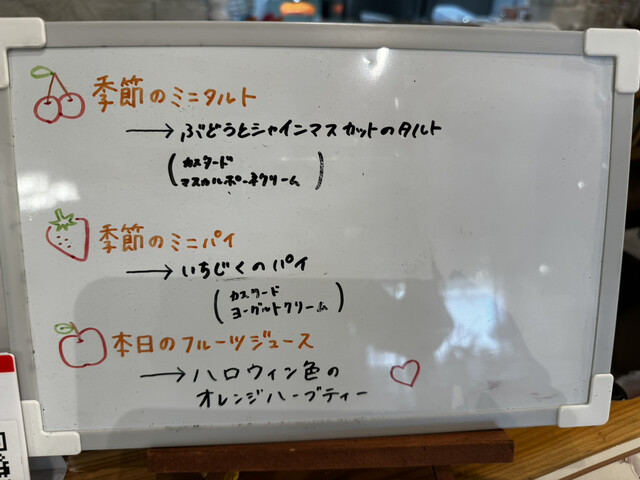 季節のミニタルト
→ぶどうとシャインマスカットのタルト
(カスタード
マスカルポーネクリーム)
季節のミニパイ
→いちじくのパイ
(カスタード
ヨーグルトクリーム)
本日のフルーツジュース
→ハロウィン色の
オレンジハーブティー